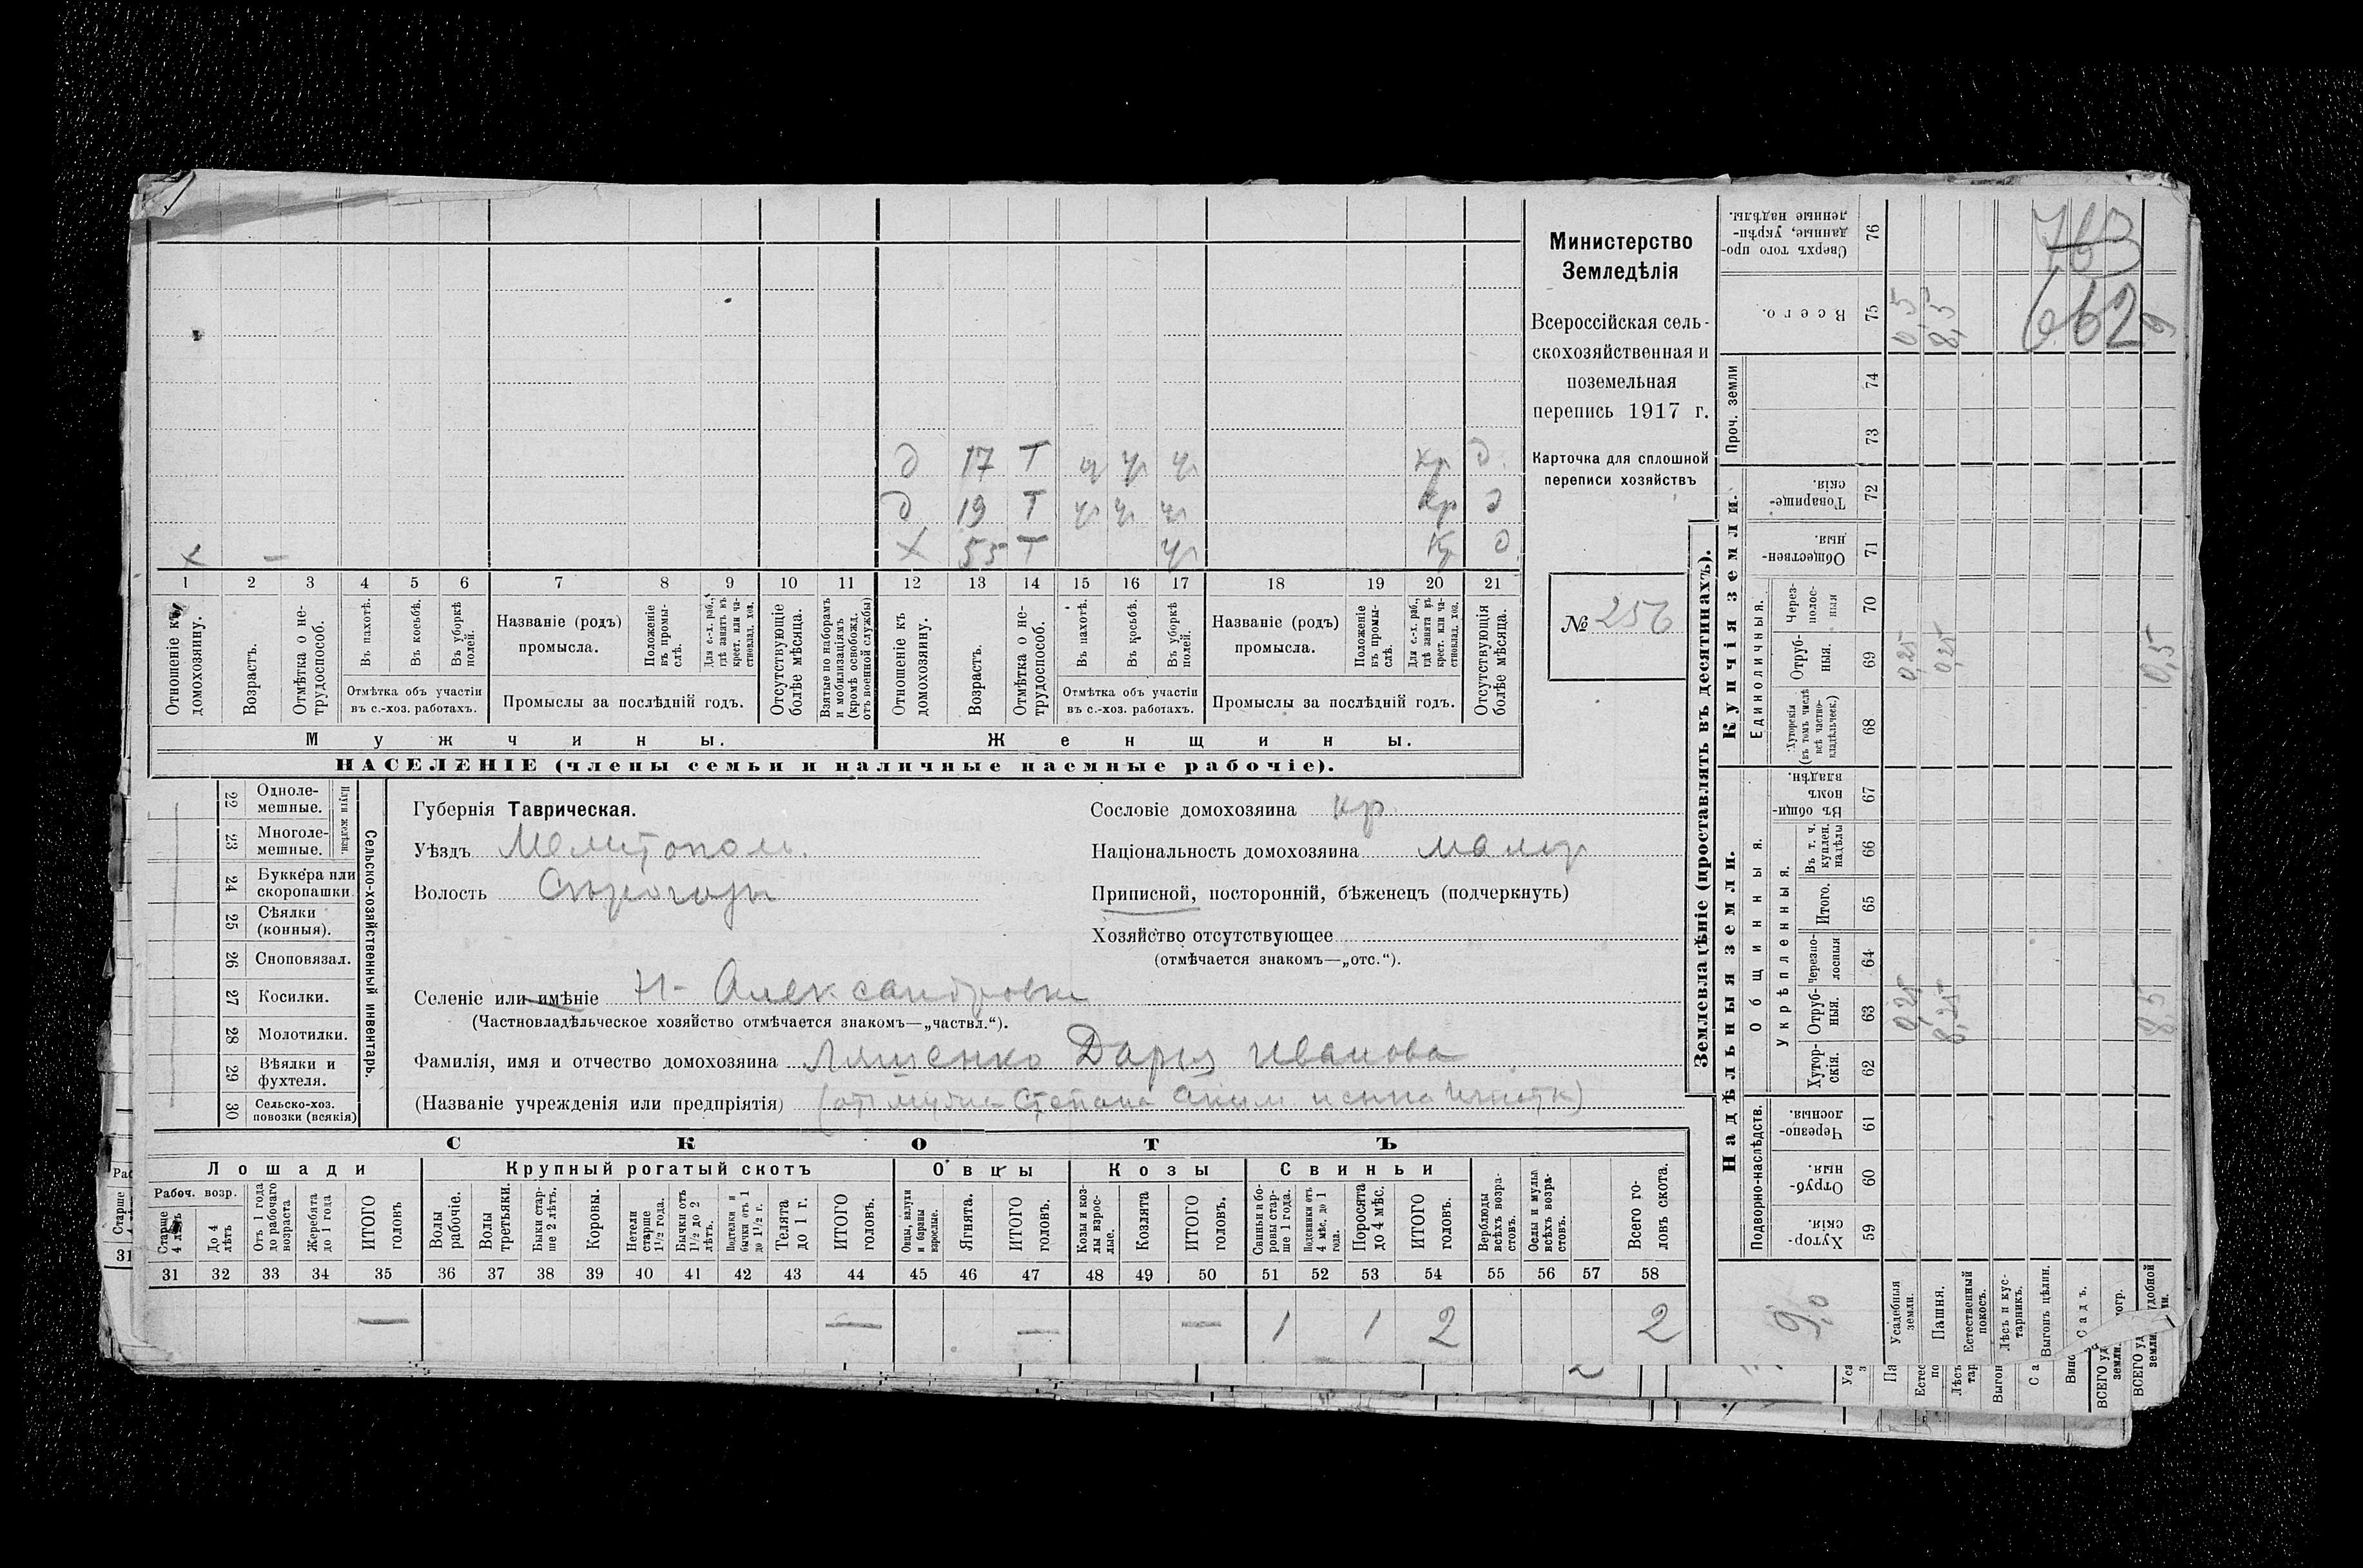 Министерство
Земледѣлія
Всероссійская сель-
скохозяйственная и
поземельная
перепись 1917 г.
Карточка для сплошной
переписи хозяйствъ
№ 256
763
662
д 17 Т ч ч ч кр д.
д 19 Т ч ч ч кр д
х — х 55 Т ч кр д
1 2 3 4 5 6 7 8 9 10 11 12 13 14 15 16 17 18 19 20 21
Отношеніе къ домохозяину.
Возрастъ.
Отмѣтка о не-трудоспособ.
Въ пахотѣ.
Въ косьбѣ.
Въ уборкѣ полей.
Отмѣтка объ участіи въ с.-хоз. работахъ.
Названіе (родъ) промысла.
Положеніе въ промы-слѣ.
Для с.-х. раб., гдѣ занятъ въ крест. или ча-стновлад. хоз.
Промыслы за послѣдній годъ.
Отсутствующіе болѣе мѣсяца.
Взятые по наборамъ и мобилизаціямъ (кромѣ освобожд. отъ военной службы)
Отношеніе къ домохозяину.
Возрастъ.
Отмѣтка о не-трудоспособ.
Въ пахотѣ.
Въ косьбѣ.
Въ уборкѣ полей.
Отмѣтка объ участіи въ с.-хоз. работахъ.
Названіе (родъ) промысла.
Положеніе въ промы-слѣ.
Для с.-х. раб., гдѣ занята въ крест. или ча-стновлад. хоз.
Промыслы за послѣдній годъ.
Отсутствующія болѣе мѣсяца.
Мужчины. Женщины.
НАСЕЛЕНІЕ (члены семьи и наличные наемные рабочіе).
Сельско-хозяйственный инвентарь.
Плуги желѣзн.
22 Одноле-мешные.
23 Многоле-мешные.
24 Буккера или скоропашки.
25 Сѣялки (конныя).
26 Сноповязал.
27 Косилки.
28 Молотилки.
29 Вѣялки и фухтеля.
30 Сельско-хоз. повозки (всякія)
Губернія Таврическая.
Уѣздъ Мелитопол.
Волость
Селеніе или имѣніе Н-Александровка
(Частновладѣльческое хозяйство отмѣчается знакомъ—„частвл.“).
Фамилія, имя и отчество домохозяина Ляшенко Дарья Иванова
(Названіе учрежденія или предпріятія) Степана
Сословіе домохозяина кр
Національность домохозяина малор
Приписной, посторонній, бѣженецъ (подчеркнуть)
Хозяйство отсутствующее
(отмѣчается знакомъ—„отс.“).
СКОТЪ
Лошади Крупный рогатый скотъ Овцы Козы Свиньи
Рабоч. возр.
Старше 4 лѣтъ
До 4 лѣтъ
Отъ 1 года до рабочаго возраста
Жеребята до 1 года
ИТОГО головъ
Волы рабочіе.
Волы третьяки.
Быки стар-ше 2 лѣтъ.
Коровы.
Нетели старше 1 1/2 года.
Бычки отъ 1 1/2 до 2 лѣтъ.
Подтелки и бычки отъ 1 до 1 1/2 г.
Телята до 1 г.
ИТОГО головъ.
Овцы, валухи и бараны взрослые.
Ягнята.
ИТОГО головъ.
Козы и коз-лы взрос-лые.
Козлята
ИТОГО головъ.
Свиньи и бо-ровы стар-ше 1 года.
Подсвинки отъ 4 мѣс. до 1 года.
Поросята до 4 мѣс.
ИТОГО головъ.
Верблюды всѣхъ возра-стовъ.
Ослы и мулы всѣхъ возра-стовъ.
Всего го-ловъ скота.
31 32 33 34 35 36 37 38 39 40 41 42 43 44 45 46 47 48 49 50 51 52 53 54 55 56 57 58
— — — — 1 1 2 2
Землевладѣніе (проставлять въ десятинахъ).
Надѣльныя земли. Купчія земли.
Подворно-наслѣдств.
Общинныя.
Укрѣпленныя.
Единоличныя.
Проч. земли
59 Хутор-скія.
60 Отруб-ныя.
61 Черезпо-лосныя.
62 Хутор-скія.
63 Отруб-ныя. 0,25 8,25 8,5
64 Черезпо-лосныя
65 Итого.
66 Въ т. ч. куплен. надѣлы
67 Въ общи-номъ владѣн.
68 Хуторскія (въ томъ числѣ всѣ частно-владѣльческ.)
69 Отруб-ныя. 0,25 0,25 0,5
70 Через-полос-ныя
71 Обществен-ныя.
72 Товарище-скія.
73
74
75 Всего. 0,5 8,5 9
76 Сверхъ того про-данные, укрѣп-ленные надѣлы.
9,0
Усадебныя земли.
Пашня.
Естественный покосъ.
Лѣсъ и кус-тарникъ.
Выгонъ цѣлин.
Садъ.